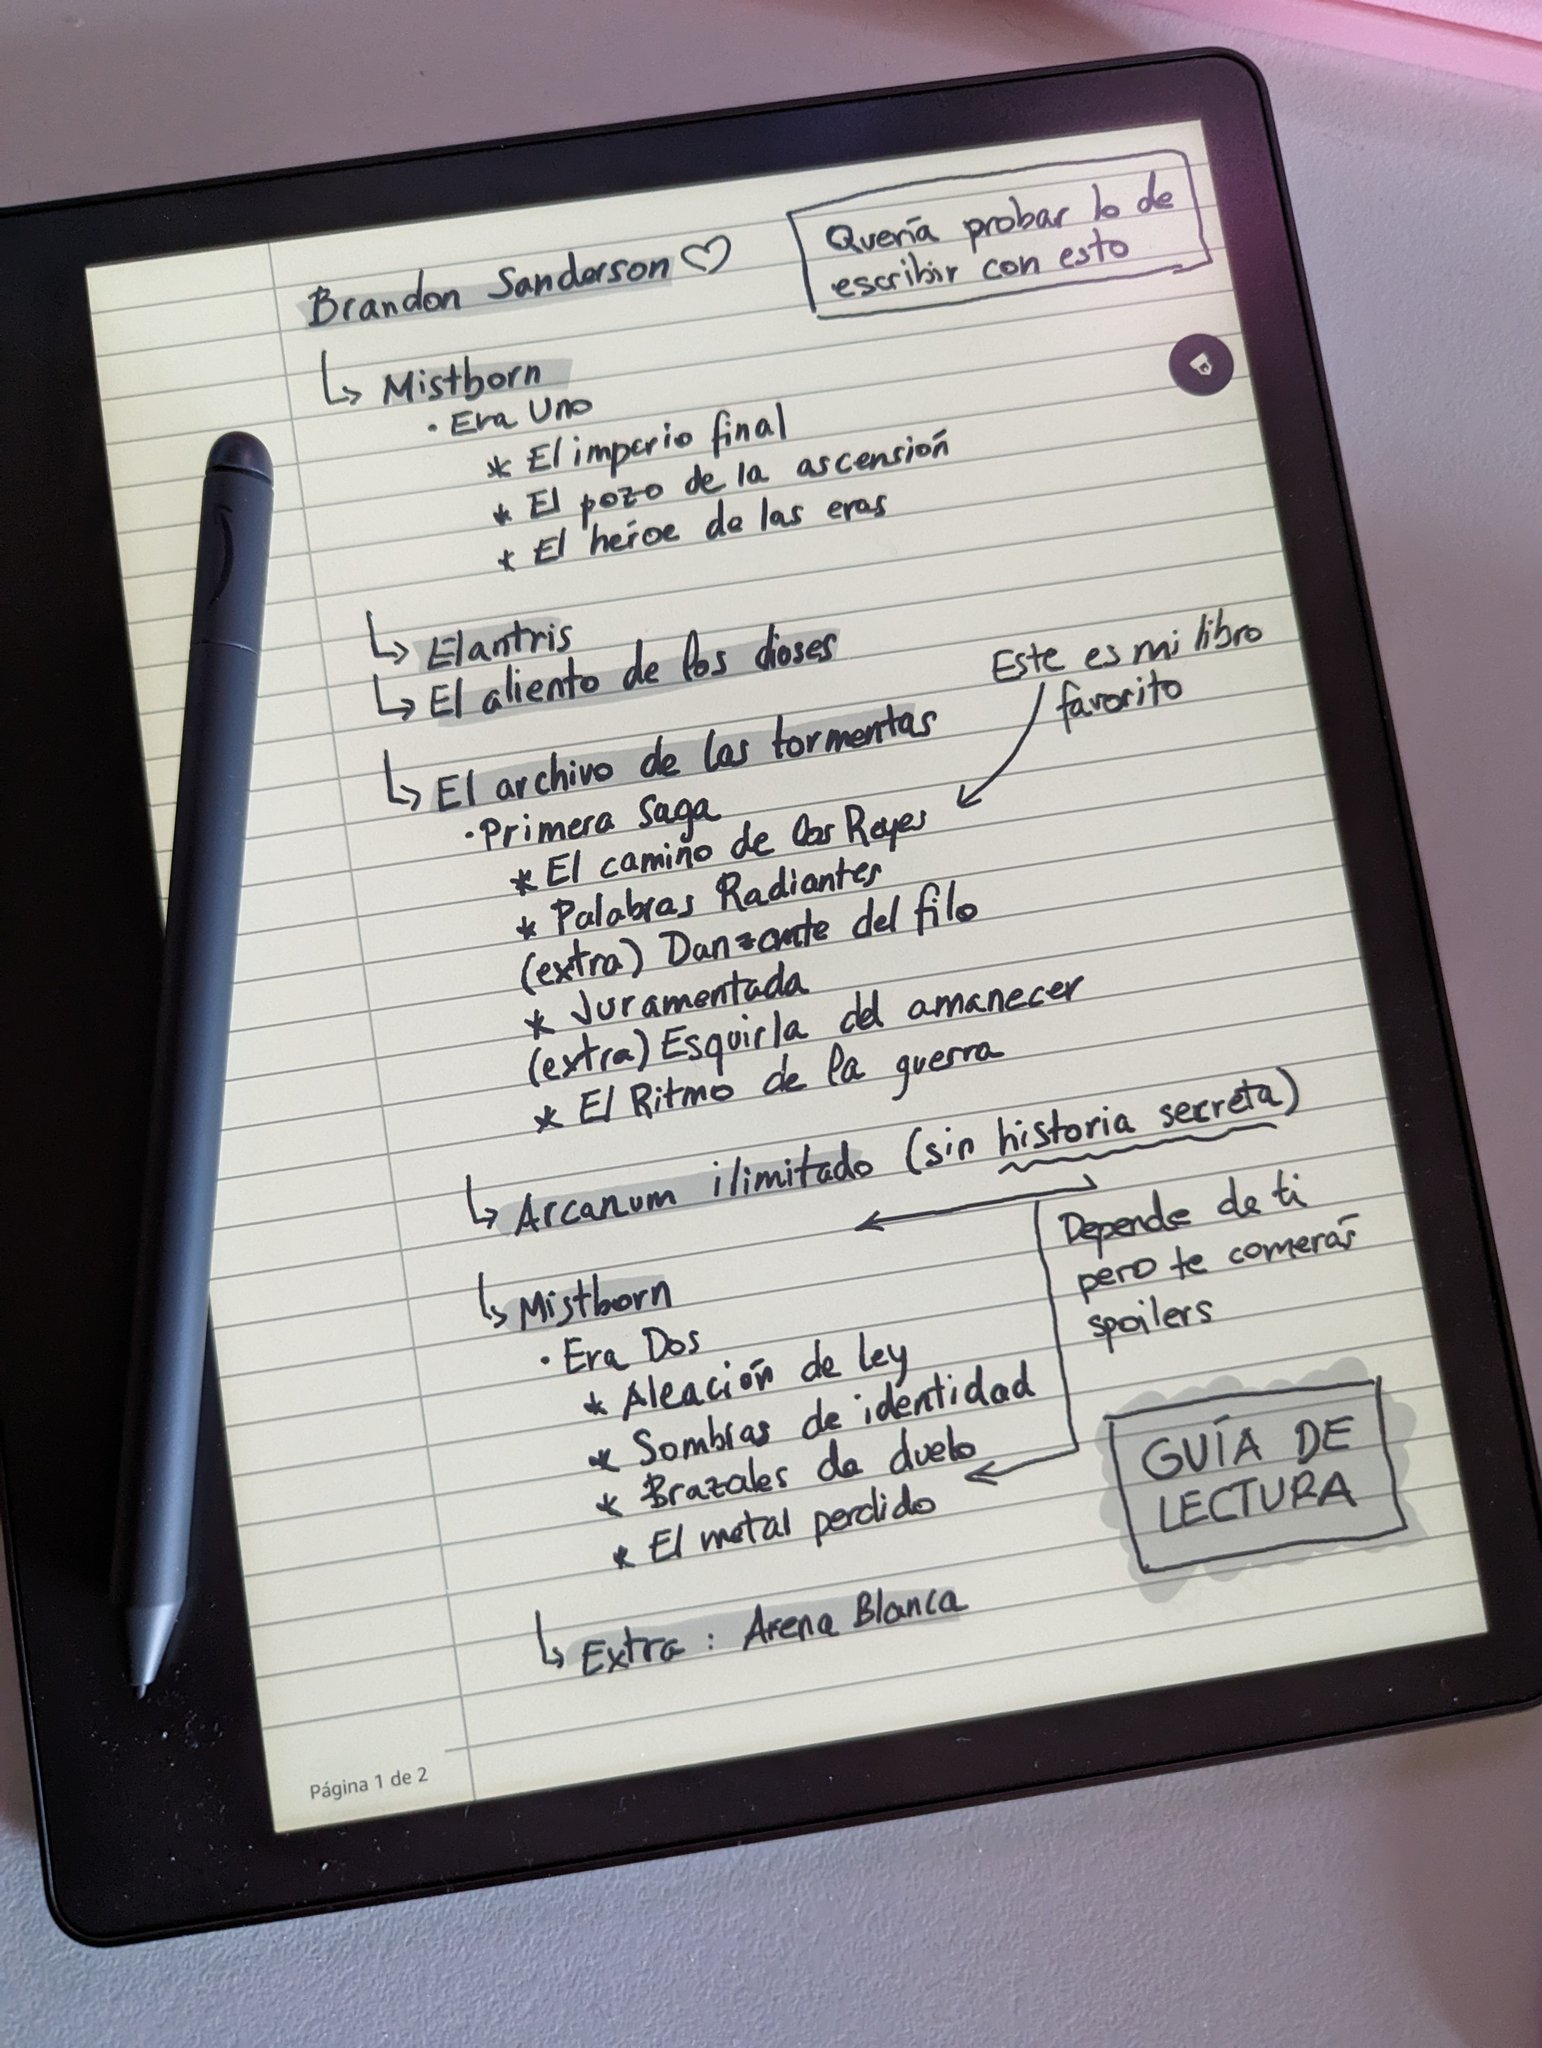 Brandon Sanderson ♡
Quería probar lo de
escribir con esto
↳ Mistborn
· Era Uno
* El imperio final
* El pozo de la ascensión
* El héroe de las eras
↳ Elantris
↳ El aliento de los dioses
Este es mi libro
favorito
↳ El archivo de las tormentas
· Primera Saga
* El camino de los Reyes
* Palabras Radiantes
(extra) Danzante del filo
* Juramentada
(extra) Esquirla del amanecer
* El Ritmo de la guerra
↳ Arcanum ilimitado (sin historia secreta)
Depende de ti
pero te comerás
spoilers
↳ Mistborn
· Era Dos
* Aleación de ley
* Sombras de identidad
* Brazales de duelo
* El metal perdido
GUÍA DE
LECTURA
↳ Extra : Arena Blanca
Página 1 de 2